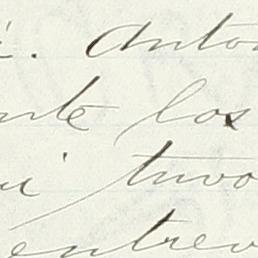 . Anto
nte los
i tuvo
entrev